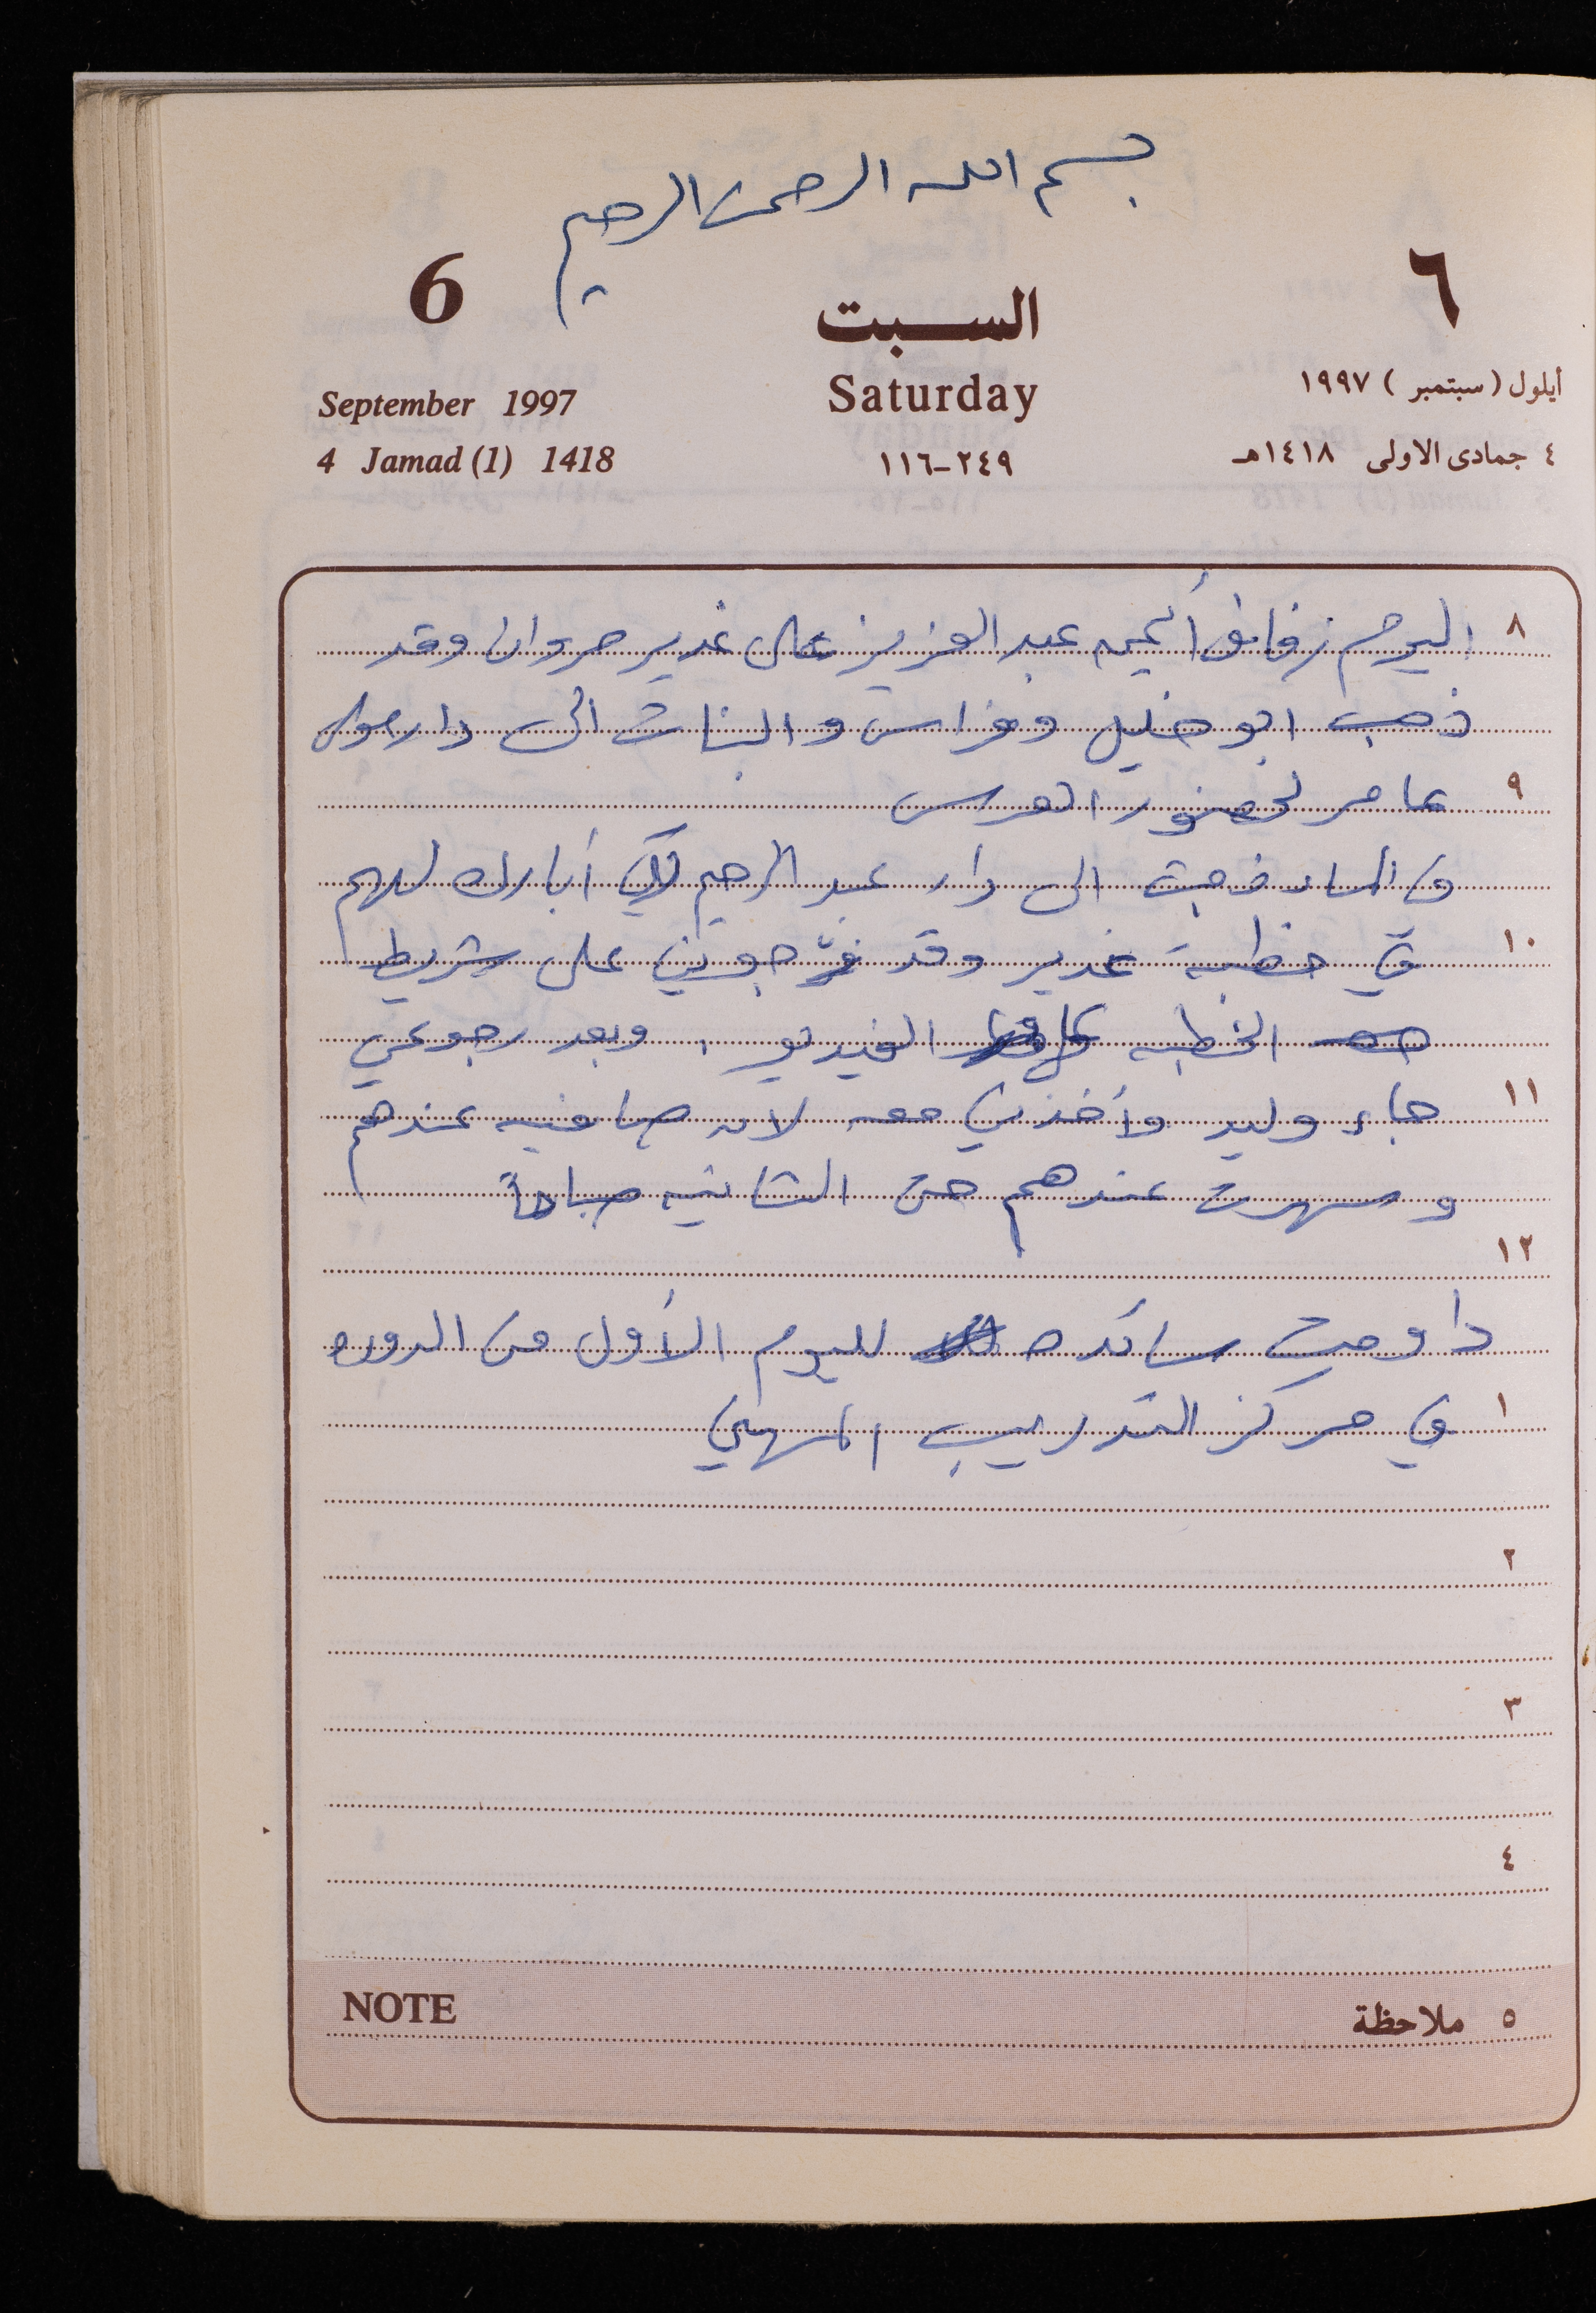 بسم الله الرحمن الرحيم
6 السبت ٦
September 1997 Saturday أيلول (سبتمبر) ١٩٩٧
4 Jamad (1) 1418 ٢٤٩-١١٦ ٤ جمادى الاولى ١٤١٨هـ
٨ اليوم زفاف أيمن عبد العزيز على غدير مروان وقد
ذهب ابو خليل وفراس والبنات الى دار
٩ عامر لحضور العرس
وفي المساء ذهبت الى دار عبد الرحيم لكي أبارك لهم
١٠ في خطبة غدير وقد فرّجوني على شريط
الخطبه الفيديو . وبعد رجوعي
١١ جاء وليد وأخذني معه لانه صافيه عندهم
وسهرت عندهم حتى الثانيه صباحاً
١٢
داومت سائده لليوم الأول من الدوره
١ في مركز التدريب المهني
٢
٣
٤
NOTE ٥ ملاحظة